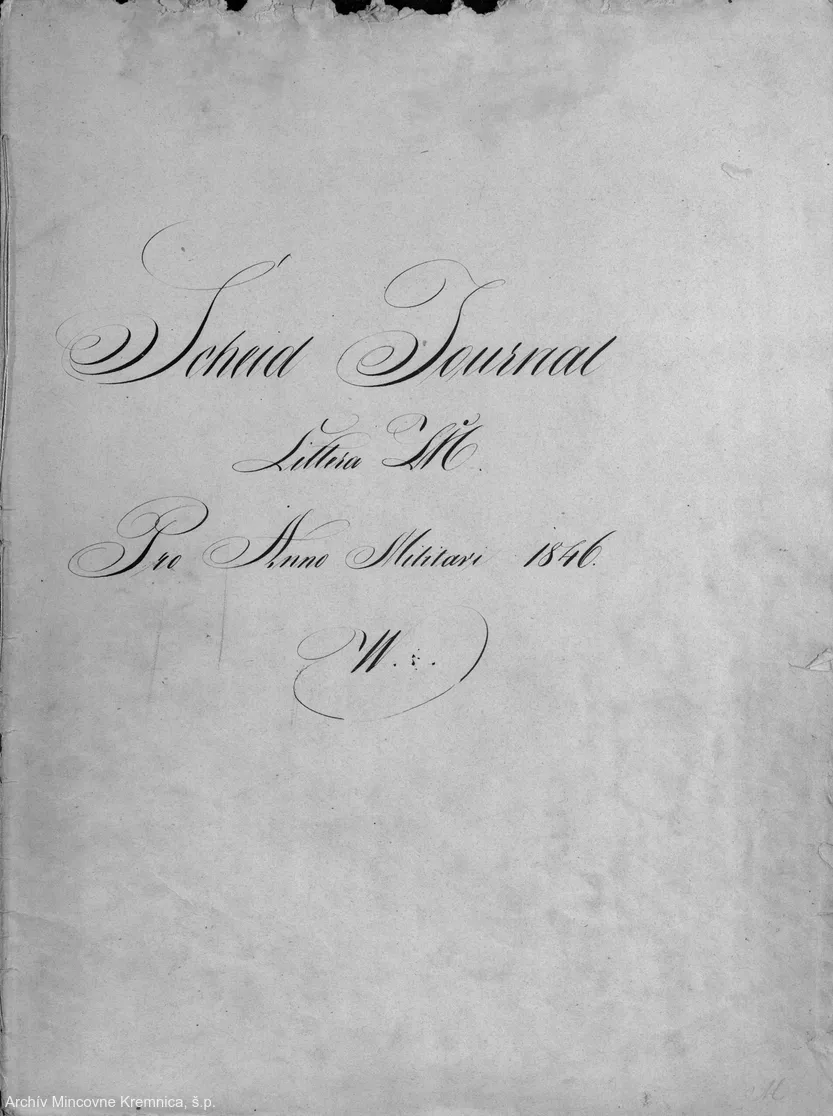 Scheid Journal
Littera M.
Pro Anno Militari 1846.
Archív Mincovne Kremnica, š.p.